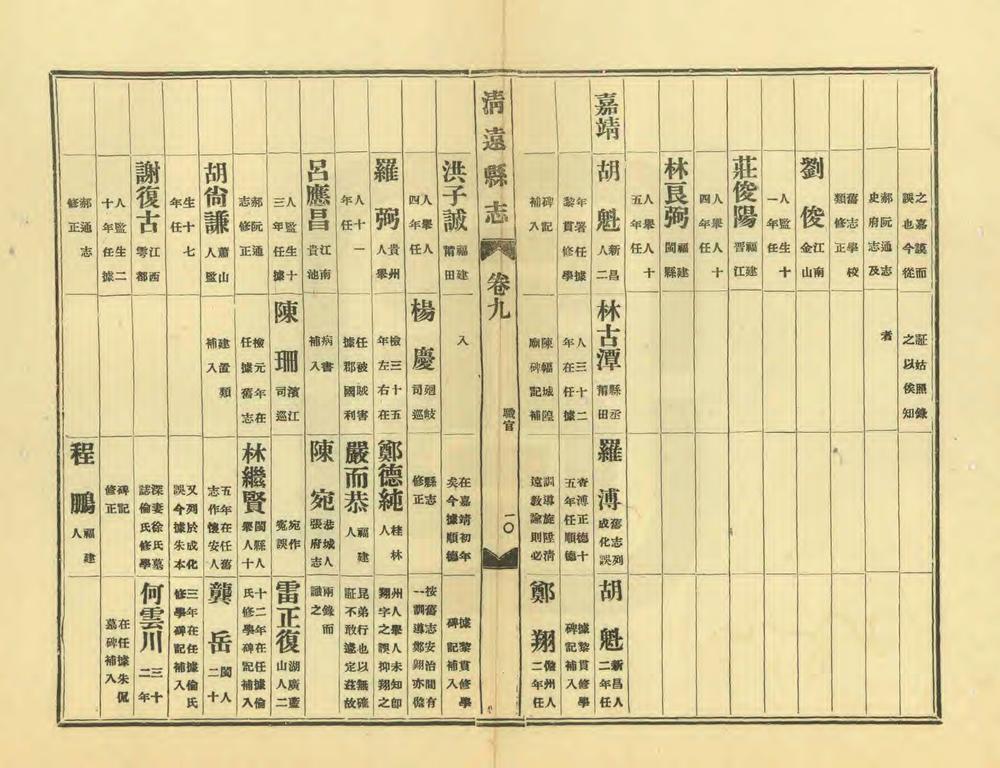 之嘉謨而
誤也今從
郝阮通志
史府志及
舊志學校
類修正
劉俊 江南
金山
人監生十
一年任
莊俊陽 福建
晋江
人舉人十
四年任
林良弼 福建
閩縣
人舉人十
五年任
嘉靖
胡魁 新昌
人二
年署任據
黎貫修學
碑記
補入
証姑照錄
之以俟知
者
林古潭 縣丞
莆田
人三十二
年在任據
陳韞城隍
廟碑記補
羅溥 舊志列
成化誤
查溥正德十
五年任順德
訓導旋陞清
遠教諭則必
胡魁 新昌人
二年任
據黎貫修學
碑記補入
鄭翔 儋州人
二年任
清遠縣志
卷九
職官
一〇
洪子誠 福建
莆田
人舉人
四年任
羅弼 貴州
人舉
人十一
年任
呂應昌 江南
貴池
人監生十
三年任據
郝阮通
志修正
胡尙謙 蕭山
人監
生十七
年任
謝復古 江西
雩都
人監生二
十年任據
郝通志
修正
入
楊慶 廻岐
司巡
檢三十五
年左右在
任被賊害
據郡國利
病書
補入
陳珊 濱江
司巡
檢元年在
任據舊志
建置類
補入
在嘉靖初年
矣今據順德
縣志
修正
鄭德純 桂林
人
嚴而恭 福建
人
陳宛 恭城人
張府志
宛作
寃誤
林繼賢 閩縣人
舉人十
五年在任舊
志作懷安人
又列於成化
誤今據朱本
深妻徐氏墓
誌倫氏修學
碑記
修正
程鵬 福建
人
據黎貫修學
碑記補入
按舊志安治間有
一訓導鄭翔亦儋
州人舉人未知卽
翔字之誤抑翔之
昆弟行也以無確
証不敢遽定茲故
兩錄而
識之
雷正復 湖廣藍
山人二
十二年在任據倫
氏修學碑記補入
龔岳 閩人
二十
三年在任據倫氏
修學碑記補入
何雲川 三十
二年
在任據朱侃
墓碑補入